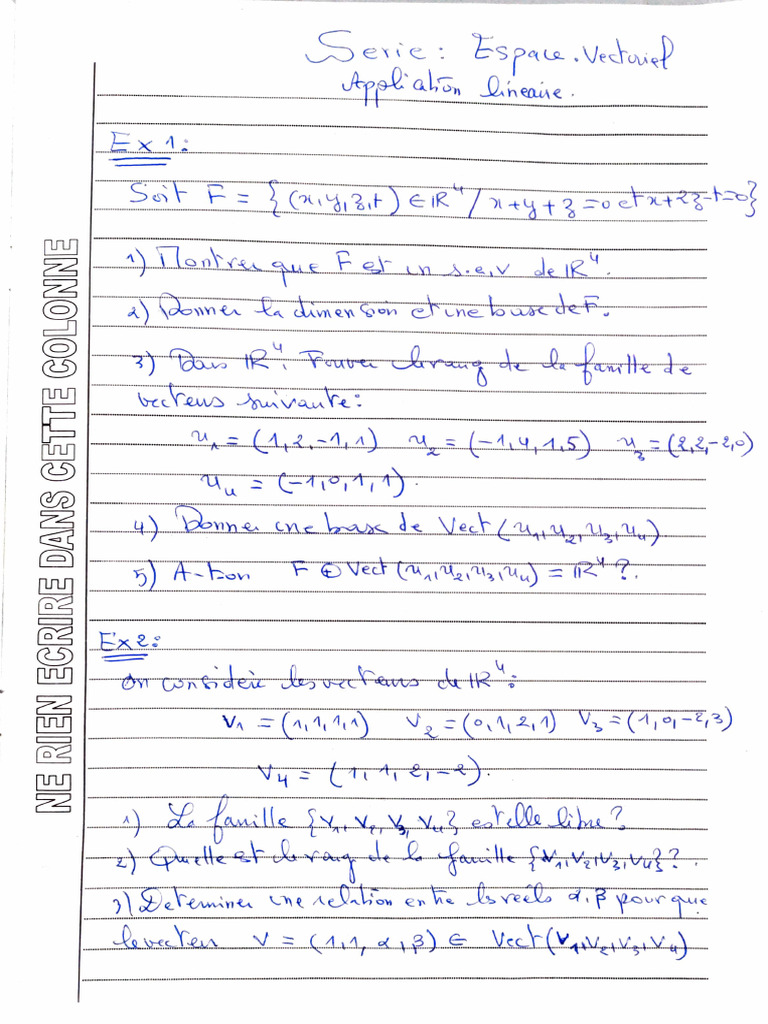 NE RIEN ECRIRE DANS CETTE COLONNE
Serie : Espace. Vectoriel
Application lineaire.
Ex 1:
Soit F = {(x,y,z,t) ∈ ℝ⁴ / x+y+z=0 et x+2z-t=0}
1) Montrer que F est un s.e.v de ℝ⁴.
2) Donner la dimension et une base de F.
3) Dans ℝ⁴. Trouver le rang de la famille de
vecteurs suivante:
u₁ = (1,2,-1,1) u₂ = (-1,4,1,5) u₃ = (2,2,-2,0)
u₄ = (-1,0,1,1).
4) Donner une base de Vect(u₁,u₂,u₃,u₄)
5) A-t-on F ⊕ Vect(u₁,u₂,u₃,u₄) = ℝ⁴ ?.
Ex2:
On considère les vecteurs de ℝ⁴:
V₁ = (1,1,1,1) V₂ = (0,1,2,1) V₃ = (1,0,-2,3)
V₄ = (1,1,2,-2).
1) La famille {V₁, V₂, V₃, V₄} est elle libre ?
2) Quelle est le rang de la famille {V₁,V₂,V₃,V₄}?.
3) Determiner une relation entre les réels α,β pour que
le vecteur V = (1,1,α,β) ∈ Vect(V₁,V₂,V₃,V₄)